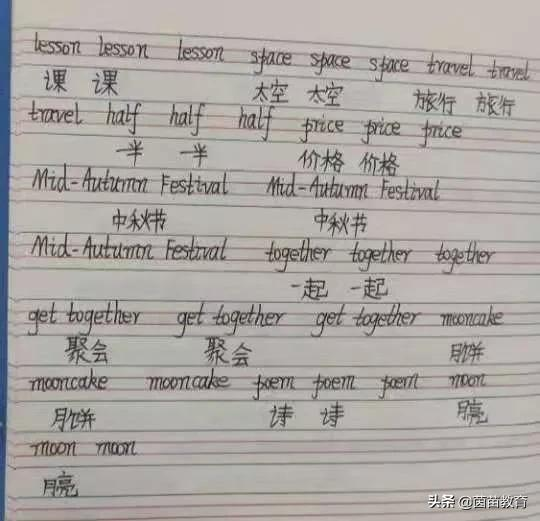 lesson lesson lesson space space space travel travel
课 课 太空 太空 旅行 旅行
travel half half half price price price
一半 一半 价格 价格
Mid-Autumn Festival Mid-Autumn Festival
中秋节 中秋节
Mid-Autumn Festival together together together
一起 一起
get together get together get together mooncake
聚会 聚会 月饼
mooncake mooncake poem poem poem moon
月饼 诗 诗 月亮
moon moon
月亮
头条 @茵苗教育